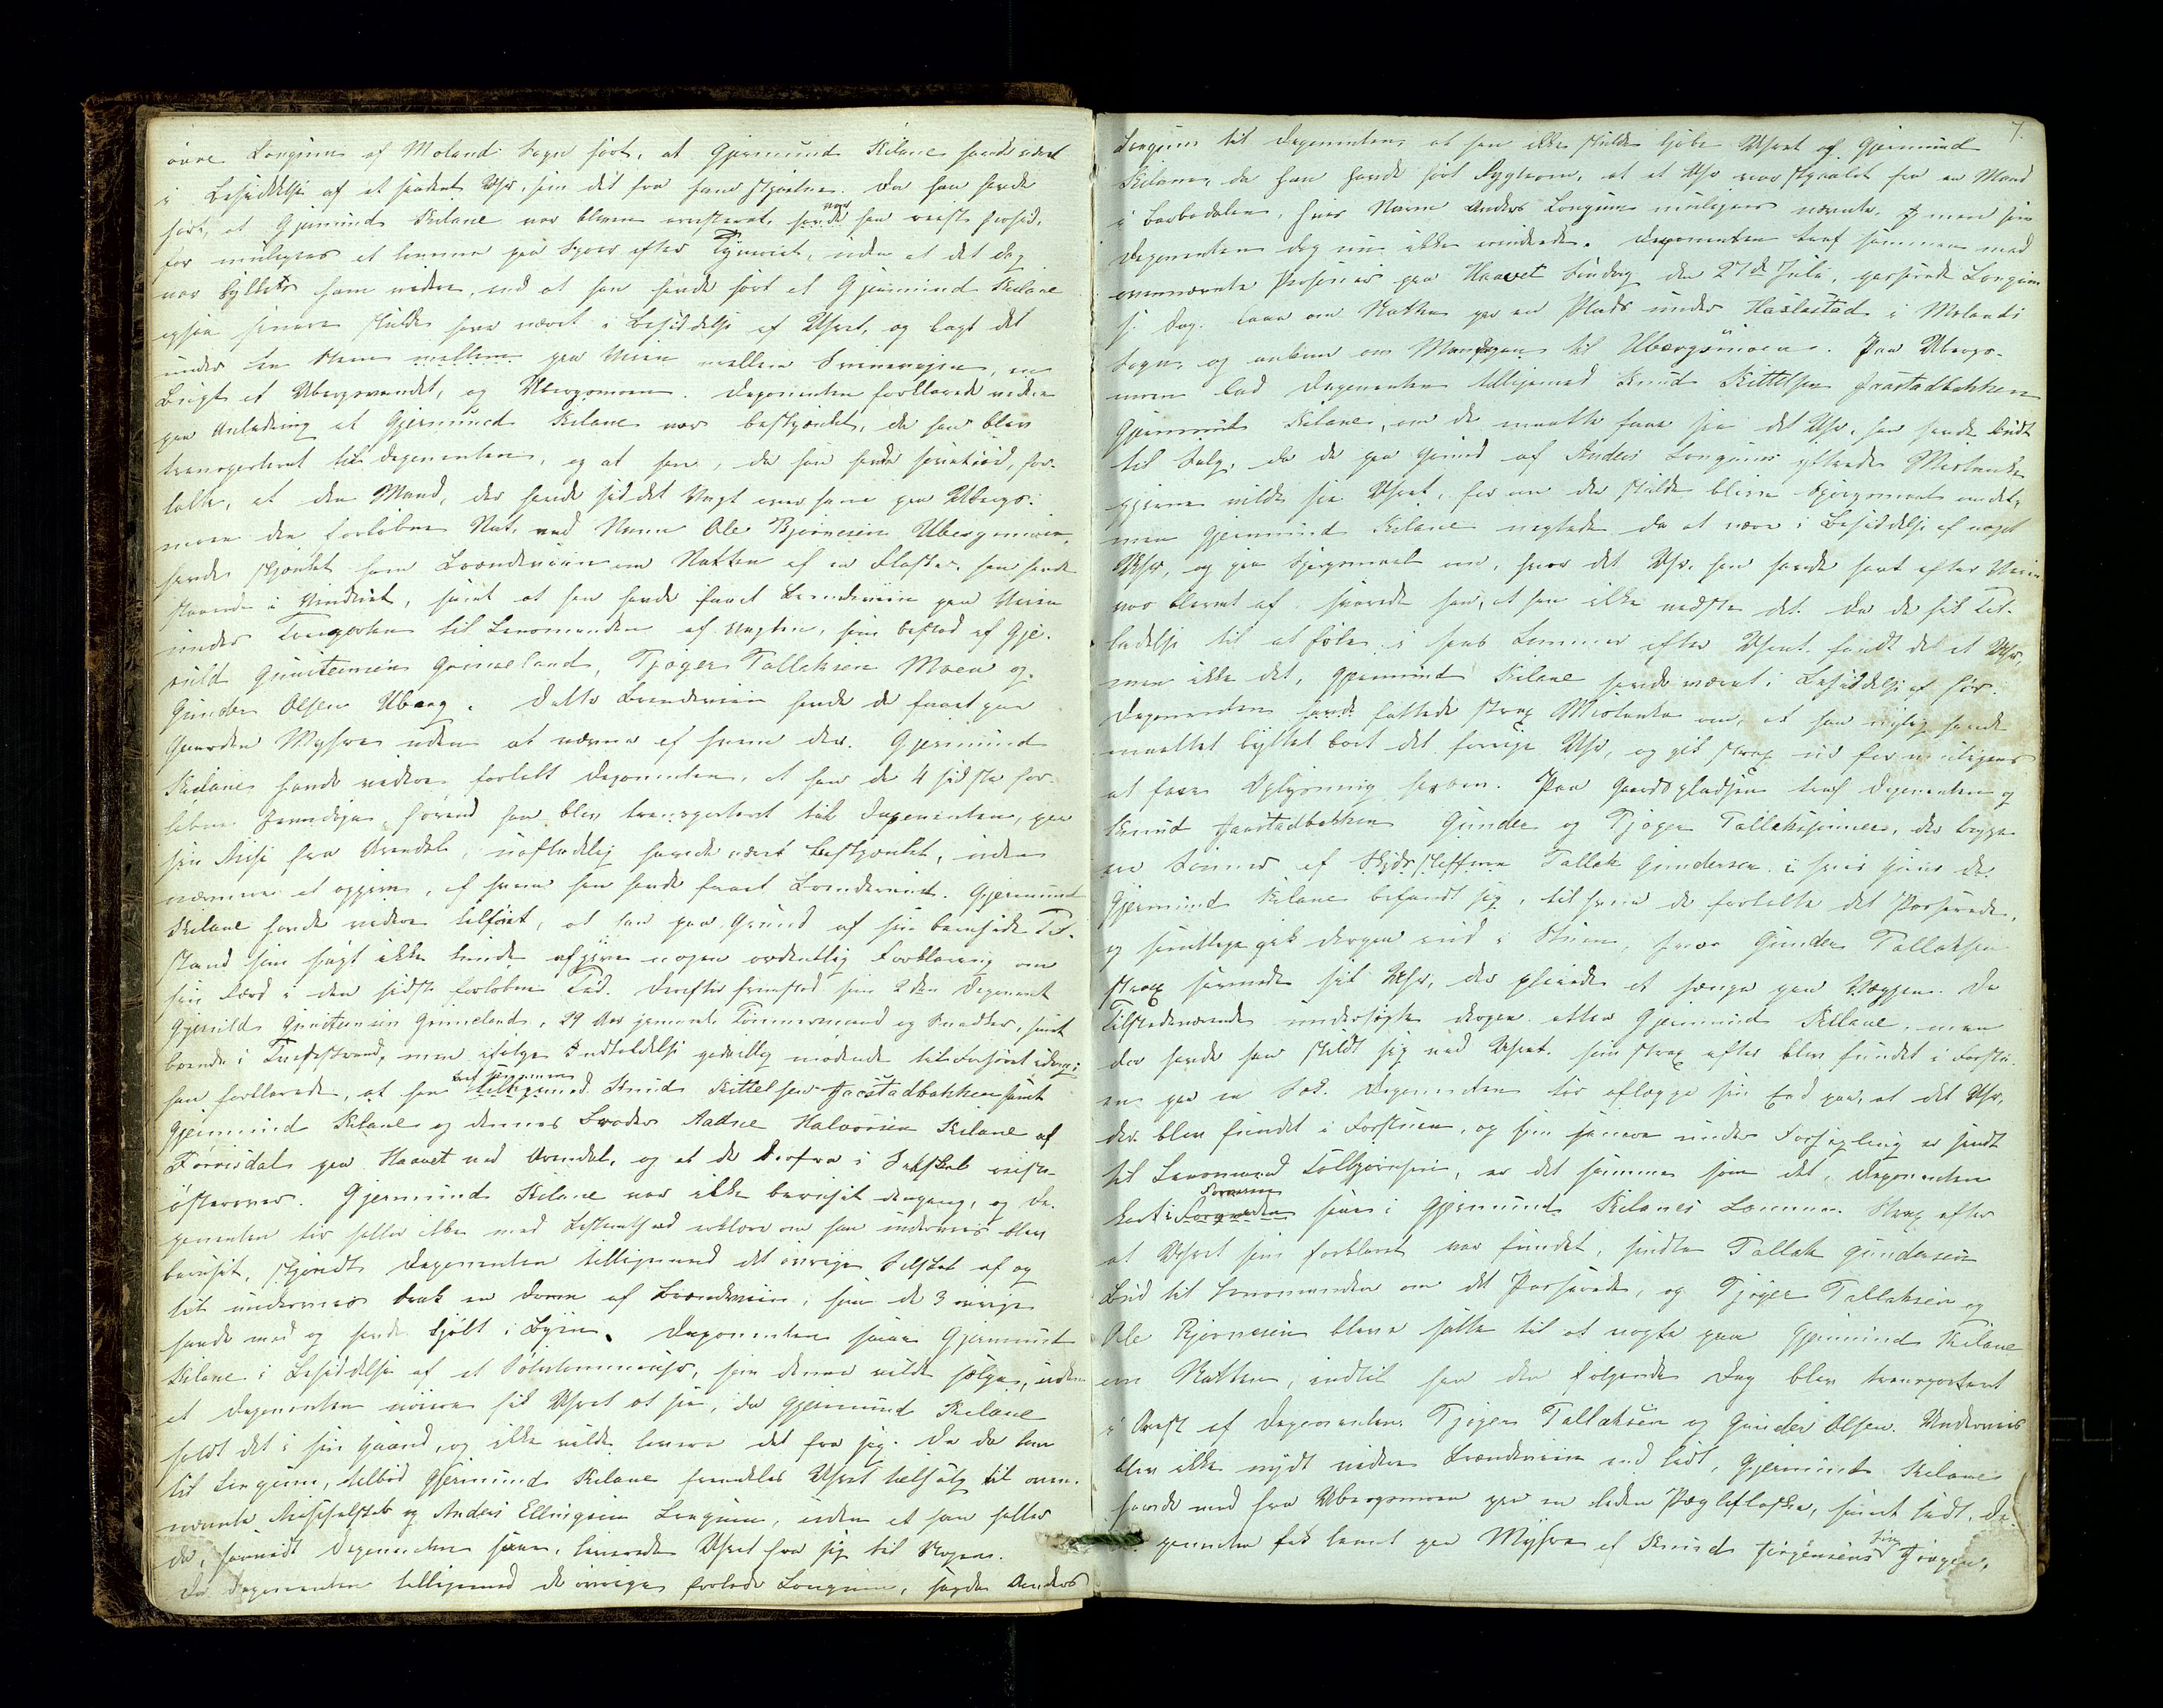 övre Longum af Molands Sogn hørt, at Gjermund Kilane havde været
i Besiddelse af et saadant Uhr, som det fra ham stjaalne. Da han havde
hørt, at Gjermund Kilane var bleven arresteret, var han reist herhid,
for muligens at komme paa Spor efter Tyveriet, uden at det dog
var lykkets ham videre, end at han havde hørt at Gjermund Kilane
ogsaa senere skulde have været i Besiddelse af Uhret, og lagt det
under en Steen mellem paa Veien mellem Svenevigen, en
Bugt af Ubergsvandet, og Ubergsmoen. Deponenten forklarede videre
paa Anledning at Gjermund Kilane var beskjænket, da han blev
transporteret til Deponenten, og at han, da han havde sovet ud, for-
talte, at den Mand, der havde siddet Vagt over ham paa Ubergs-
moen den forløbne Nat, ved Navn Ole Bjørnesen Ubergsmoen,
havde skjænket ham Brændeviin om Natten af en Flaske, han havde
staaende i Vinduet, samt at han havde faaet Brændeviin paa Veien
under Transporten til Lensmanden af Vagten, som bestod af Gje-
ruld Gunsteinsen Grimeland, Tjøger Tallaksen Moen og
Gunder Olsen Uberg. Dette Brændeviin havde de faaet paa
Gaarden Myhre uden at nævne af hvem der. Gjermund
Kilane havde videre fortalt Deponenten, at han de 4 sidste for-
løbne Dage, førend han blev transporteret til Deponenten, paa
sin Reise fra Arendal, uafladelig havde været beskjænket, uden
nærmere at opgive, af hvem han havde faaet Brændeviin. Gjermund
Kilane havde videre tilføiet, at han paa Grund af sin berusede Til-
stand som sagt ikke kunde afgive nogen ordentlig Forklaring om
sin Færd i den sidst forløbne Tid. Derefter fremstod som 2den Deponent
Gjeruld Gunsteinsen Grimeland, 29 Aar gammel, Tømmermand og Snedker, samt
boende i Tvedestrand, men ifølge Indkaldelse godvillig mødende til Forhøret idag;
han forklarede, at han traf sammen med Knud Kittelsen Jaarstadbakken samt
Gjermund Kilane og dennes Broder Aadne Halvorsen Kilane af
Fyrrisdal paa Haavet ved Arendal, og at de derfra i Selskab reiste
østerover. Gjermund Kilane var ikke beruset dengang, og De-
ponenten tør heller ikke med Bestemthed erklære om han underveis blev
beruset, skjøndt Deponenten tilligemed det øvrige Selskab af og
til underveis drak en Dram af Brændeviin, som de 3 øvrige
havde med og havde kjøbt i Byen. Deponenten saae Gjermund
Kilane i Besiddelse af et Sølvlommeuhr, som denne vilde sælge, uden
at Deponenten nøiere fik Uhret at see, da Gjermund Kilane
holdt det i sin Haand, og ikke vilde levere det fra sig. Da de kom
til Longum, tilbød Gjermund Kilane fremdeles Uhret tilsalg til oven-
nævnte Reiseselskab og Anders Ellingsen Longum, uden at han heller
da, saavidt Deponenten saae, leverede Uhret fra sig til Nogen.
Da Deponenten tilligemed de øvrige forlode Longum, sagde Anders
7.
Longum til Deponenten, at han ikke skulde kjøbe Uhret af Gjermund
Kilane, da han havde hørt Rygte om, at et Uhr var stjaalet fra en Mand
i Barbodalen, hvis Navn Anders Longum muligens nævnte, men som
Deponenten dog nu ikke erindrede. Deponenten traf sammen med
ovennævnte Personer paa Haavet Søndag den 27de Juli, passerede Longum
s. Dag, laae om Natten paa en Plads under Haslestad i Molands
Sogn, og ankom om Mandagen til Ubergsmoen. Paa Ubergs-
moen bad Deponenten tilligemed Knud Kittelsen Jaarstadbakken
Gjermund Kilane, om de maatte faae see det Uhr, han havde budt
til Salg, da de paa Grund af Anders Longums yttrede Mistanke
gjerne vilde see Uhret, for om der skulde blive Spørgsmaal om det,
men Gjermund Kilane negtede da at være i Besiddelse af noget
Uhr, og paa Spørgsmaal om, hvor det Uhr, han havde havt efter Veien
var blevet af, svarede han, at han ikke vidste det. Da de fik Til-
ladelse til at føle i hans Lommer efter Uhret, fandt de et Uhr,
men ikke det, Gjermund Kilane havde været i Besiddelse af før.
Deponenten havde fattede strax Mistanke om, at han nylig havde
maattet byttet bort det forrige Uhr, og gik strax ud for muligens
at faae Oplysning herom. Paa Gaardspladsen traf Deponenten og
Knud Jaarstadbakken Gunder og Tjøger Tallaksønner, der begge
ere Sønner af Skydsskaffer Tallak Gundersen i hvis Huus de
Gjermund Kilane befandt sig, til hvem de fortalte det Passerede,
og samtlige gik derpaa ind i Stuen, hvor Gunder Tallaksen
strax savnede sit Uhr, der pleiede at hænge paa Væggen. De
Tilstedeværende undersøgte derpaa atter Gjermund Kilane, men
da havde han skildt sig ved Uhret, som strax efter blev fundet i Forstu-
en paa en Sæk. Deponenten tør aflægge sin Eed paa, at det Uhr,
der blev fundet i Forstuen, og som senere under Forsegling er sendt
til Lensmand Tolbjørnsen, er det samme som det, Deponenten
kort i Forveien saae i Gjermund Kilanes Lomme. Strax efter
at Uhret som forklaret var fundet, sendte Tallak Gundersen
Bud til Lensmanden om det Passerede, og Tjøger Tallaksen og
Ole Bjørnesen bleve satte til at vogte paa Gjermund Kilane
om Natten, indtil han den følgende Dag blev transporteret
i Arrest af Deponenten, Tjøger Tallaksen og Gunder Olsen. Underveis
blev ikke nydt videre Brændeviin end lidt, Gjermund Kilane
havde med fra Ubergsmoen paa en liden Pægleflaske, samt lidt, De-
ponenten fik laant paa Myhre af Knud Jørgensens Søn Jørgen,